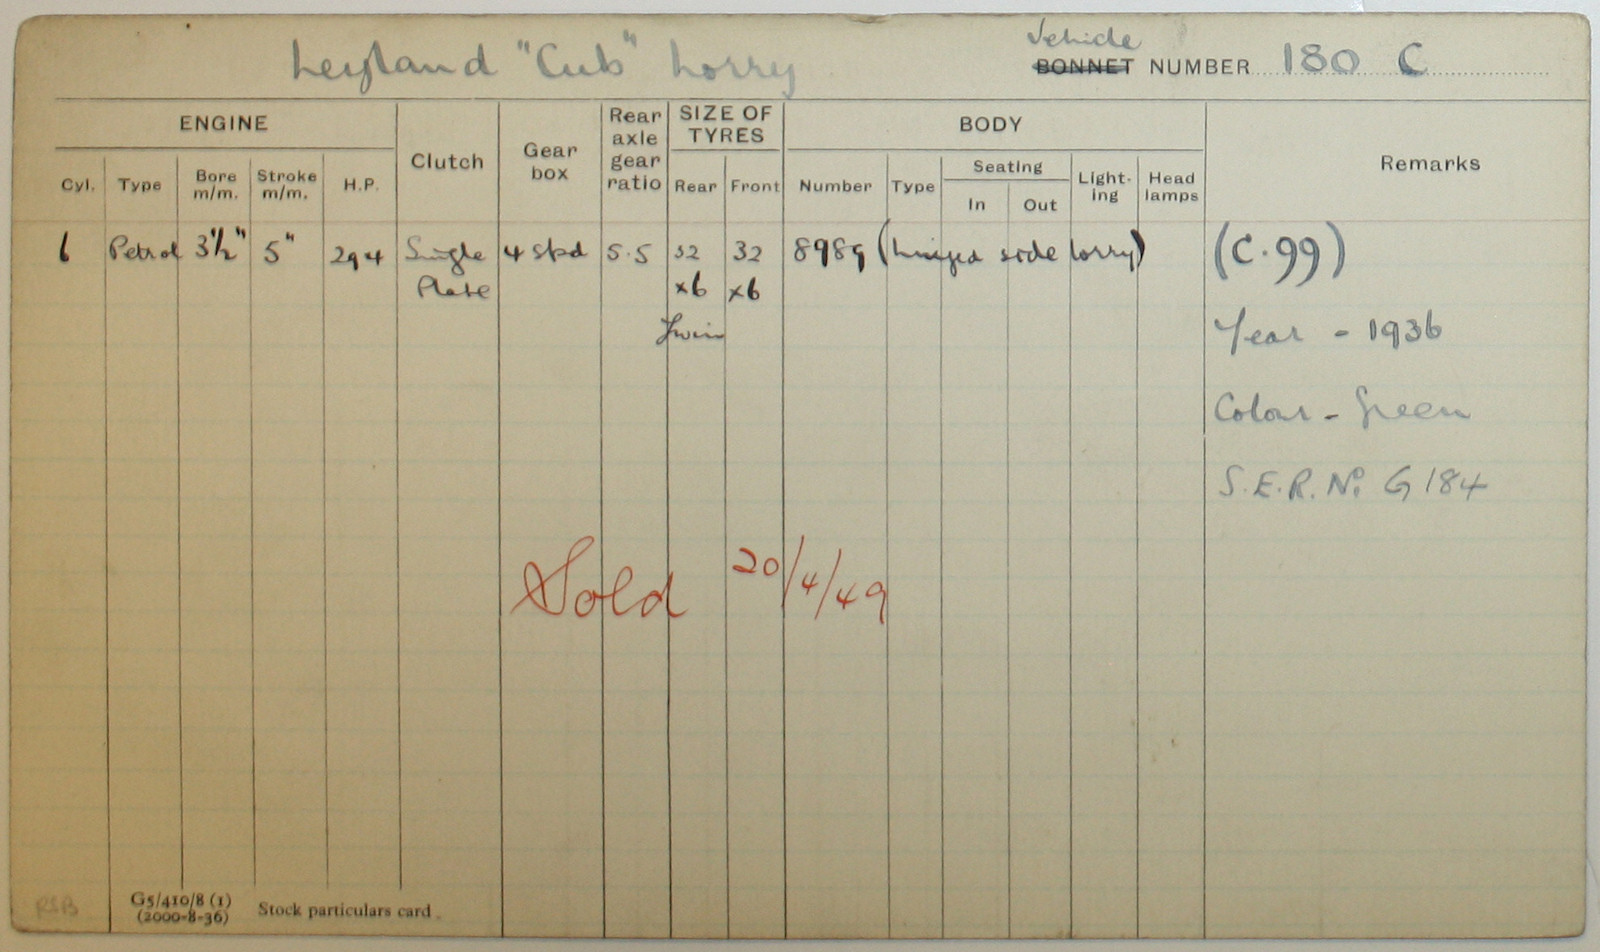 Leyland "Cub" Lorry
Vehicle
BONNET NUMBER 180 C
ENGINE
Clutch
Gear box
Rear axle gear ratio
SIZE OF TYRES
BODY
Remarks
Cyl.
Type
Bore m/m.
Stroke m/m.
H.P.
Rear
Front
Number
Type
Seating
In
Out
Light-ing
Head lamps
6 Petrol 3½" 5" 29.4 Single 4 spd 5.5 32 32 8989 (hinged side lorry) (C.99)
Plate x6 x6
Twin
Year - 1936
Colour - Green
S.E.R. No. G 184
Sold 20/4/49
G5/410/8 (1)
(2000-8-36) Stock particulars card